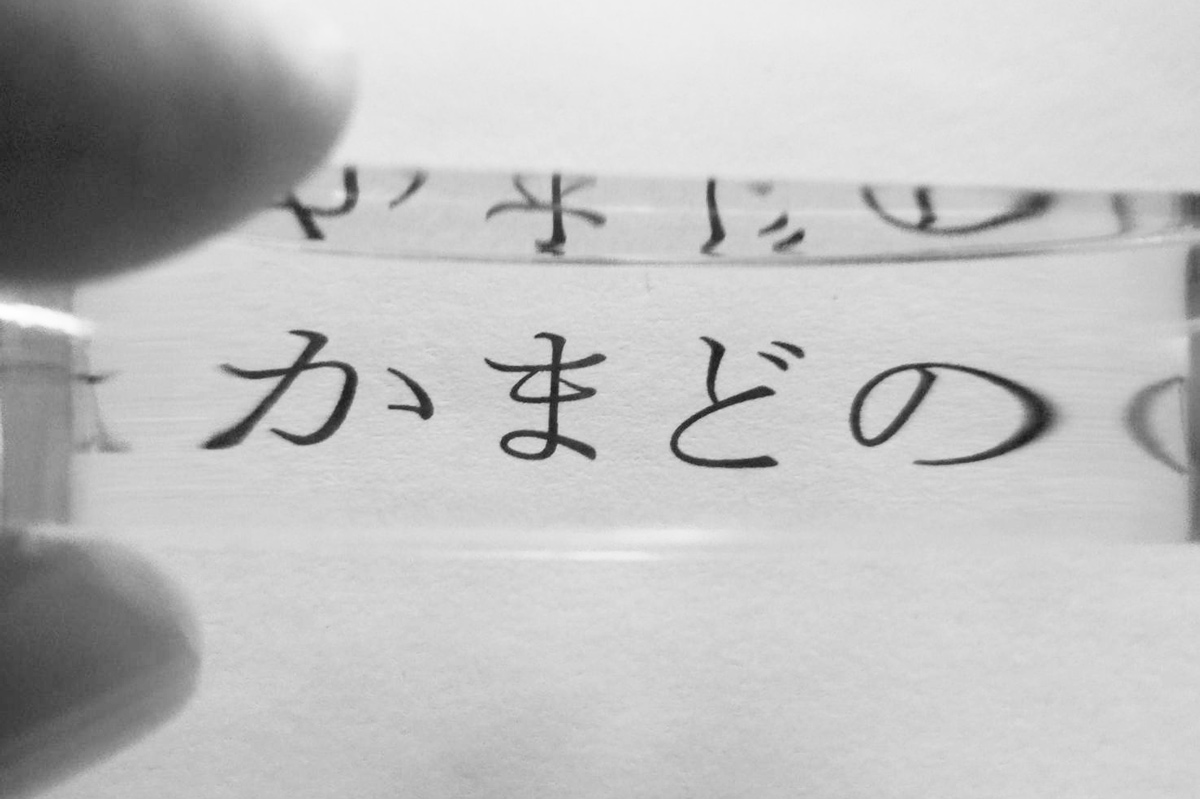 かまどの